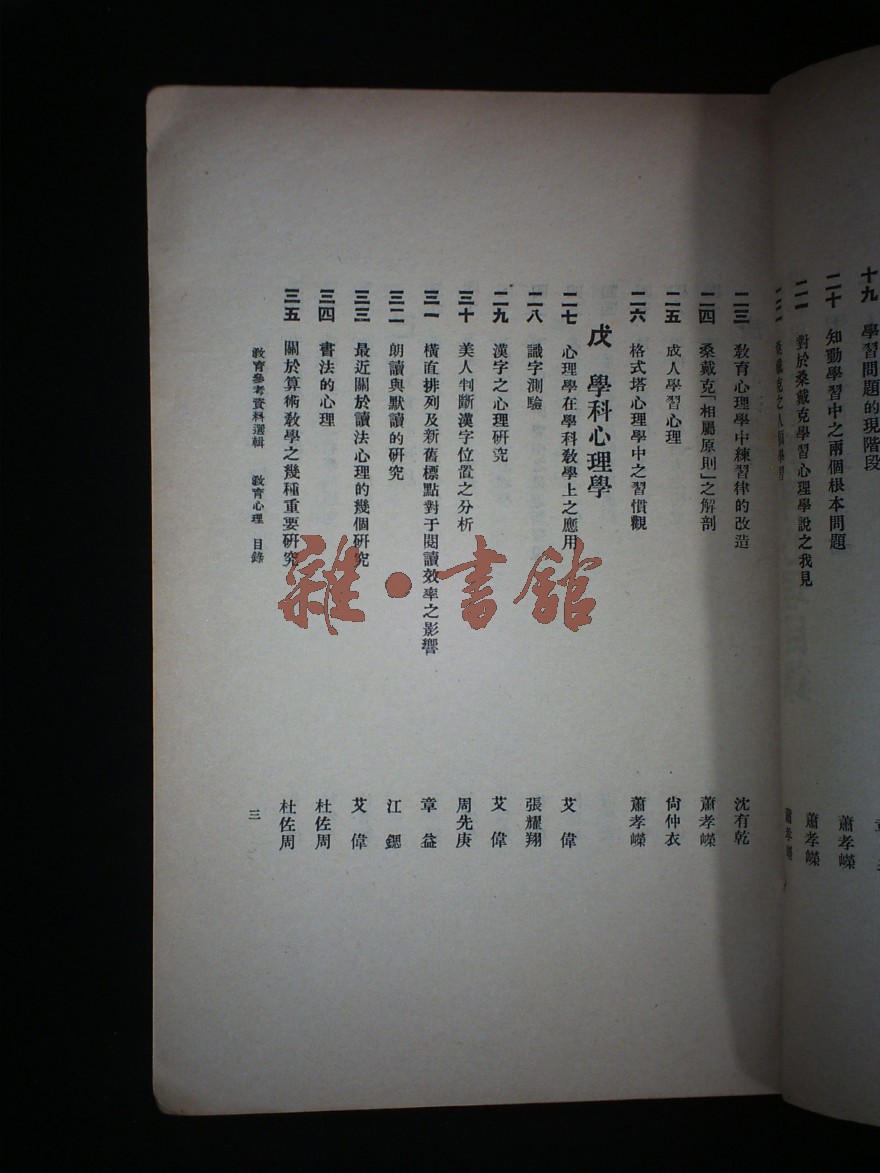 十九 學習問題的現階段
二十 知動學習中之兩個根本問題 蕭孝嶸
二一 對於桑戴克學習心理學說之我見 蕭孝嶸
二二 桑戴克之人類學習 蕭孝嶸
二三 教育心理學中練習律的改造 沈有乾
二四 桑戴克「相屬原則」之解剖 蕭孝嶸
二五 成人學習心理 尙仲衣
二六 格式塔心理學中之習慣觀 蕭孝嶸
戊 學科心理學
二七 心理學在學科教學上之應用 艾偉
二八 識字測驗 張耀翔
二九 漢字之心理研究 艾偉
三十 美人判斷漢字位置之分析 周先庚
三一 橫直排列及新舊標點對于閱讀效率之影響 章益
三二 朗讀與默讀的研究 江鍶
三三 最近關於讀法心理的幾個研究 艾偉
三四 書法的心理 杜佐周
三五 關於算術教學之幾種重要研究 杜佐周
教育參考資料選輯 教育心理 目錄 三
雜·書館